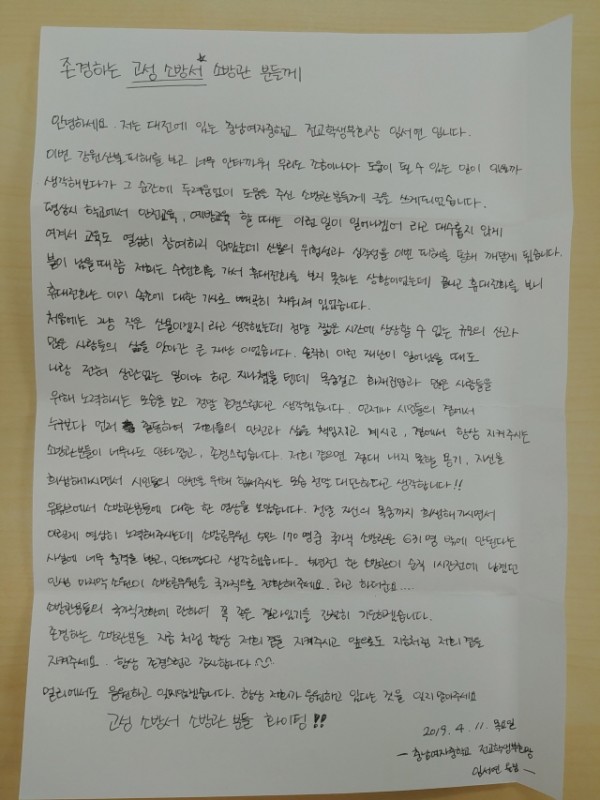 존경하는 고성 소방서 소방관 분들께
안녕하세요. 저는 대전에 있는 충남여자중학교 전교학생부회장 임서연 입니다.
이번 강원산불 피해를 보고 너무 안타까워 우리도 조금이나마 도움이 될 수 있는 일이 있을까
생각해보다가 그 순간에 두려움없이 도움을 주신 소방관분들께 글을 쓰게되었습니다.
평상시 학교에서 안전교육, 예방교육 할 때마다 이런 일이 일어나겠어 라고 대수롭지 않게
여겨서 교육도 열심히 참여하지 않았는데 산불의 위험성과 심각성을 이번 피해를 통해 깨닫게 됩니다.
불이 났을 때쯤 저희는 수련회를 가서 휴대전화를 보지 못하는 상황이었는데 끝나고 휴대전화를 보니
휴대전화는 이미 속초에 대한 기사로 빼곡히 채워져 있었습니다.
처음에는 그냥 작은 산불이겠지 라고 생각했는데 정말 짧은 시간에 상상할 수 없는 규모의 산과
많은 사람들의 삶을 앗아간 큰 재난 이었습니다. 솔직히 이런 재난이 일어났을 때도
나랑 전혀 상관없는 일이야 하고 지나쳤을 텐데 목숨걸고 화재진압과 많은 사람들을
위해 노력하시는 모습을 보고 정말 존경스럽다고 생각했습니다. 언제나 시민들의 곁에서
누구보다 먼저 출동하여 저희들의 안전과 삶을 책임지고 계시고, 곁에서 항상 지켜주시는
소방관분들이 너무나도 안타깝고, 존경스럽습니다. 저희 같으면 절대 내지 못할 용기, 자신을
희생해가시면서 시민들의 안전을 위해 힘써주시는 모습 정말 대단하다고 생각합니다!!
유튜브에서 소방관분들에 대한 한 영상을 보았습니다. 정말 자신의 목숨까지 희생해가시면서
이렇게 열심히 노력해주시는데 소방공무원 5만 170명중 국가직 소방관은 631명 밖에 안된다는
사실에 너무 충격을 받고, 안타깝다고 생각했습니다. 한 소방관이 순직 1시간전에 남겼던
인생 마지막 소원이 소방공무원을 국가직으로 전환해주세요. 라고 하더군요....
소방관분들의 국가직전환에 관하여 꼭 좋은 결과있기를 간절히 기도하겠습니다.
존경하는 소방관분들 지금 처럼 항상 저희 곁을 지켜주시고 앞으로도 지금처럼 저희 곁을
지켜주세요. 항상 존경스럽고 감사합니다 ^^
멀리에서도 응원하고 있겠습니다. 항상 저희가 응원하고 있다는 것을 잊지 말아주세요
고성 소방서 소방관 분들 화이팅!!
2019. 4. 11. 목요일
- 충남여자중학교 전교학생부회장
임서연 올림 -